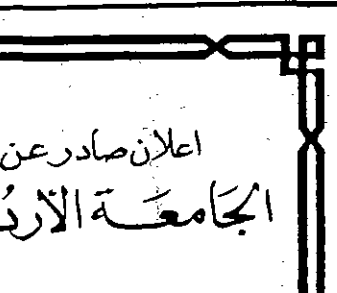 اعلان صادر عن
الجَامعَـة الأرد